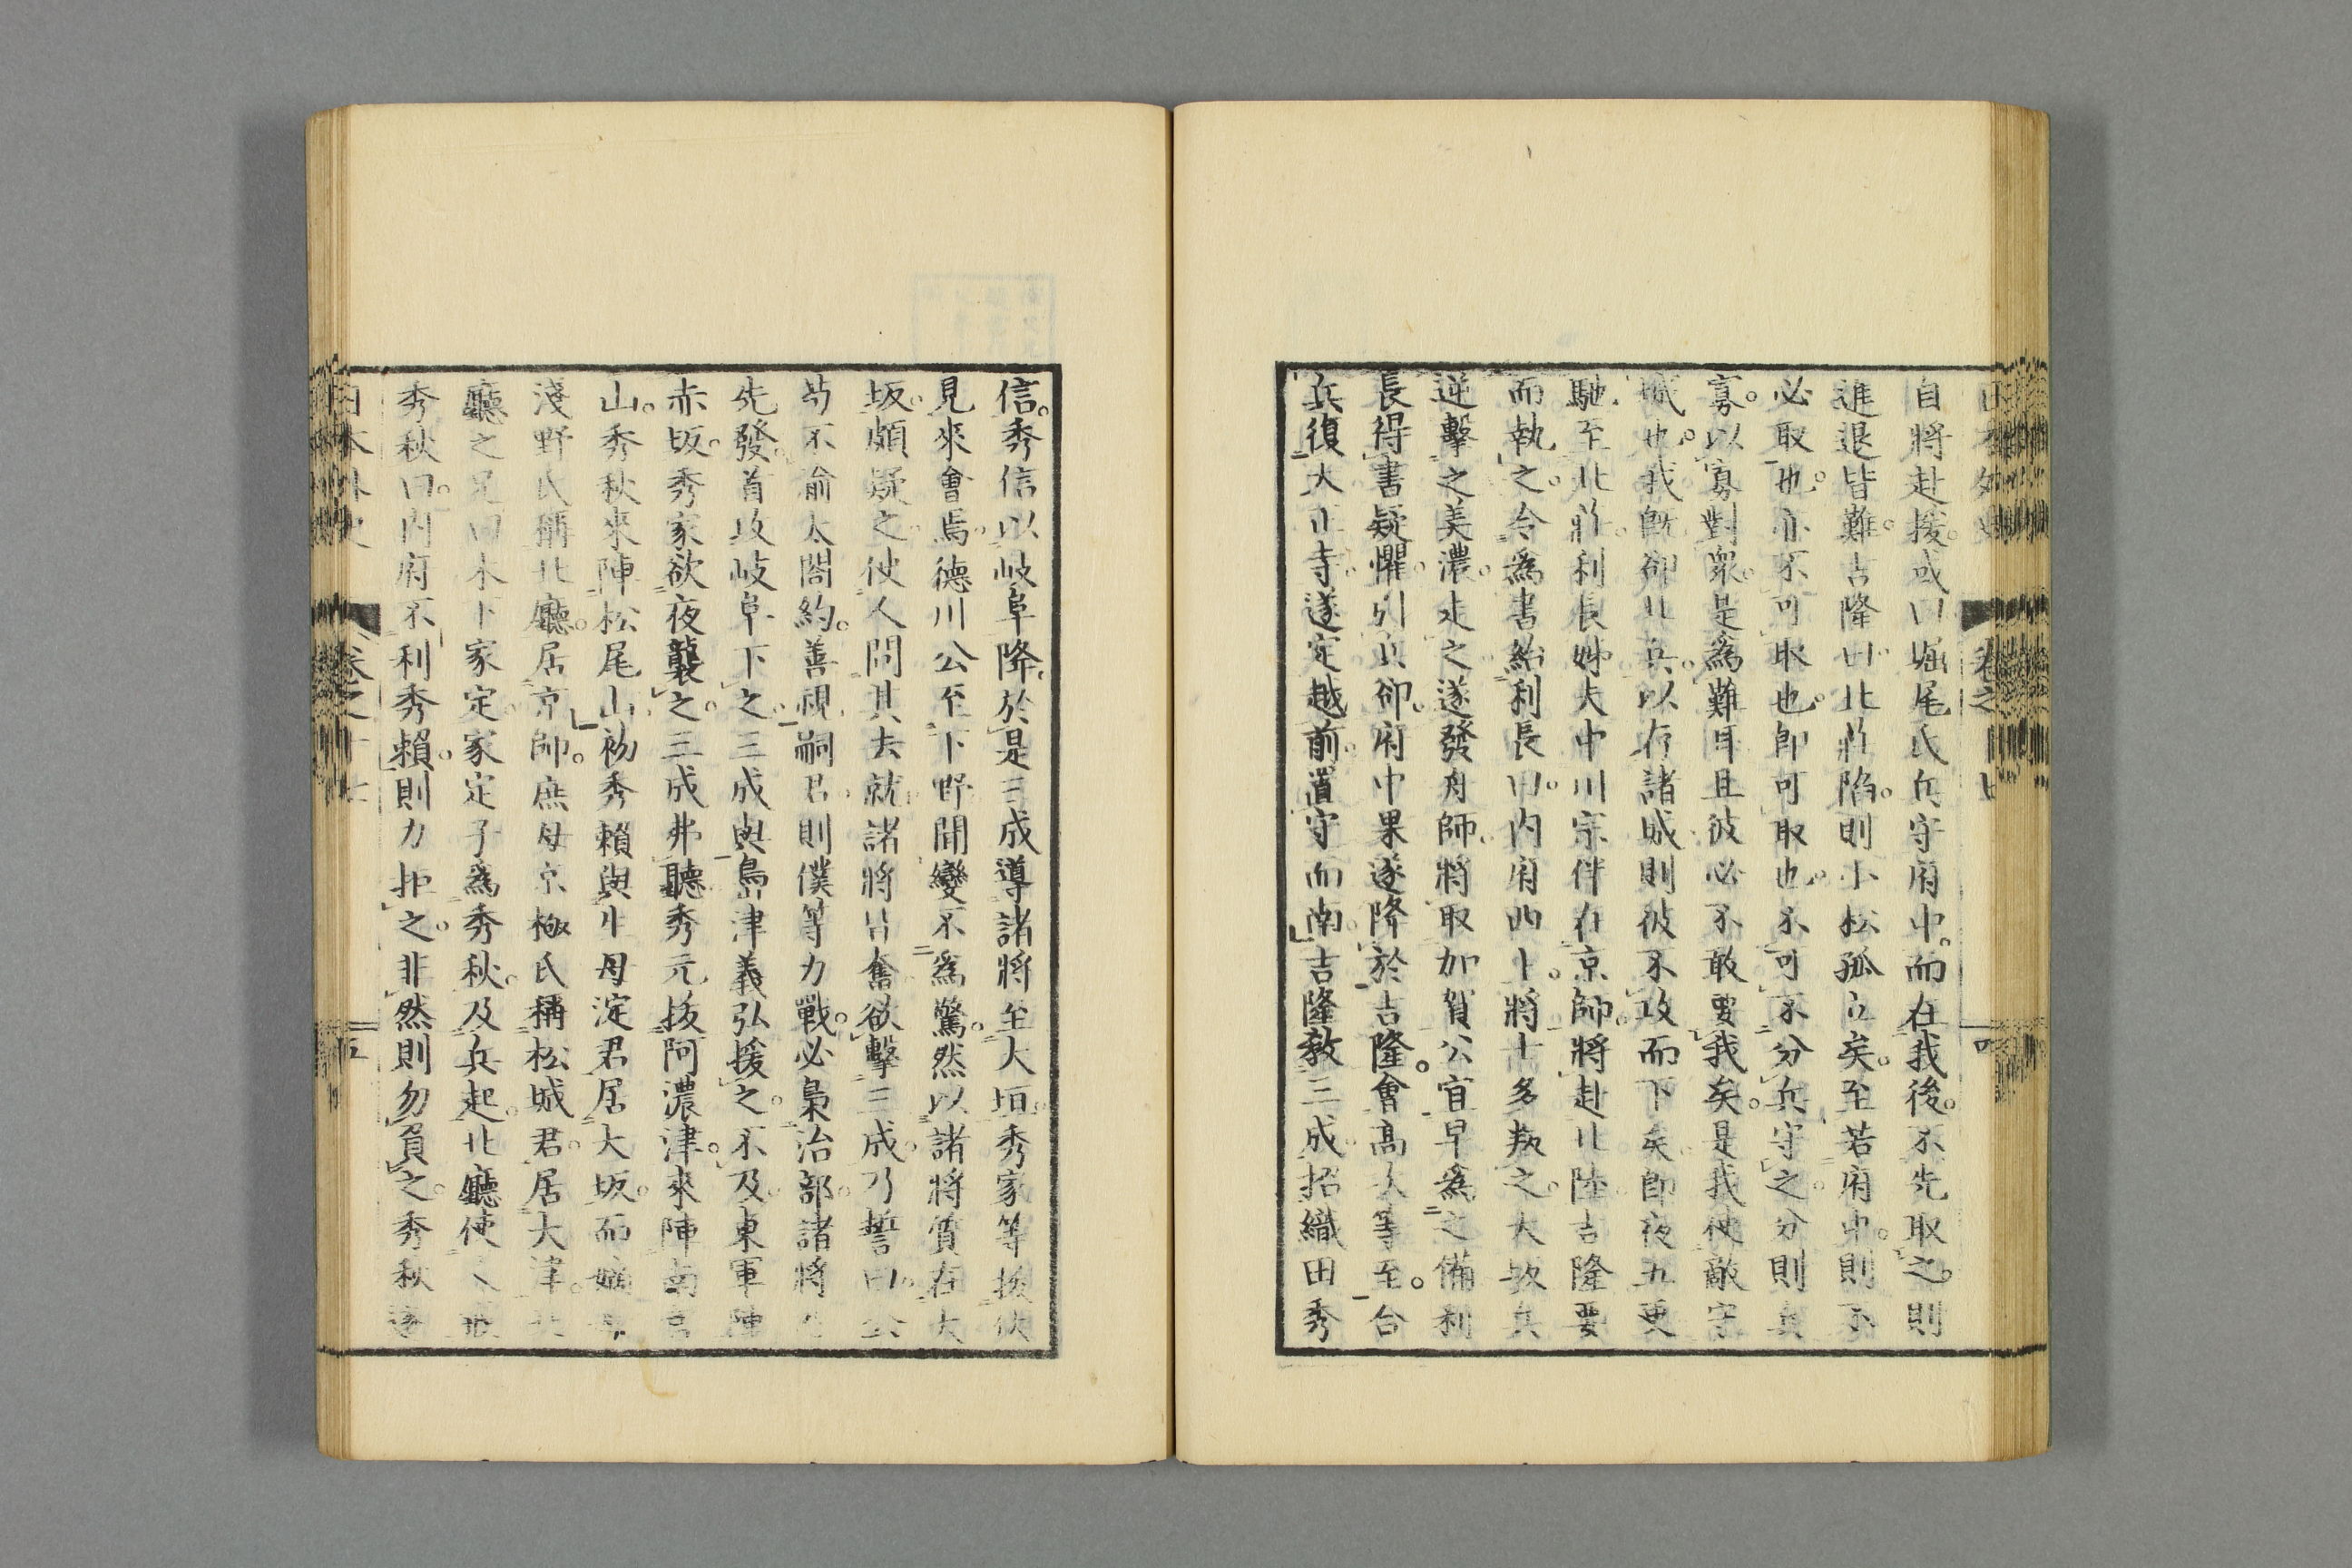 自將赴援。或曰堀尾氏兵守府中。而在我後。不先取之。則
進退皆難。吉隆曰北莊陷。則小松孤立矣。至若府中。則不
必取也。亦不可取也。卽可取也。不可不分兵守之。分則兵
寡。以寡對衆。是爲難耳且彼必不敢要我矣。是我使敵守
城也。我既卻北兵。以存諸城則彼不攻而下矣。卽夜五更
馳至北莊。利長姊夫中川宗伴在京師。將赴北陸。吉隆要
而執之。令爲書紿利長曰。內府西上。將士多叛之。大坂兵
逆擊之美濃。走之遂發舟師。將取加賀。公宜早爲之備利
長得書疑懼。引兵卻。府中果遂降於吉隆。會高次等至。合
兵復大正寺。遂定越前。置守而南。吉隆敎三成。招織田秀
信。秀信以岐阜降。於是三成導諸將至大垣。秀家等援伏
見來會焉。德川公至下野聞變不爲驚。然以諸將質在大
坂。頗疑之。使人問其去就。諸將皆奮欲擊三成。乃誓曰。公
苟不渝太閤約。善視嗣君。則僕等力戰。必梟治部。諸將
先發。首攻岐阜。下之。三成與島津義弘援之。不及。東軍陣
赤坂。秀家欲夜襲之。三成弗聽。秀元拔阿濃津。來陣南宮
山。秀秋來陣松尾山。初秀賴與生母淀君居大坂。而嫡母
淺野氏稱北廳。居京師。庶母京極氏稱松城君。居大津。
廳之兄曰木下家定。家定子爲秀秋。及兵起。北廳使人
秀秋曰。內府不利秀賴。則力拒之。非然則勿負之。秀秋
日本外史 卷之十七 五